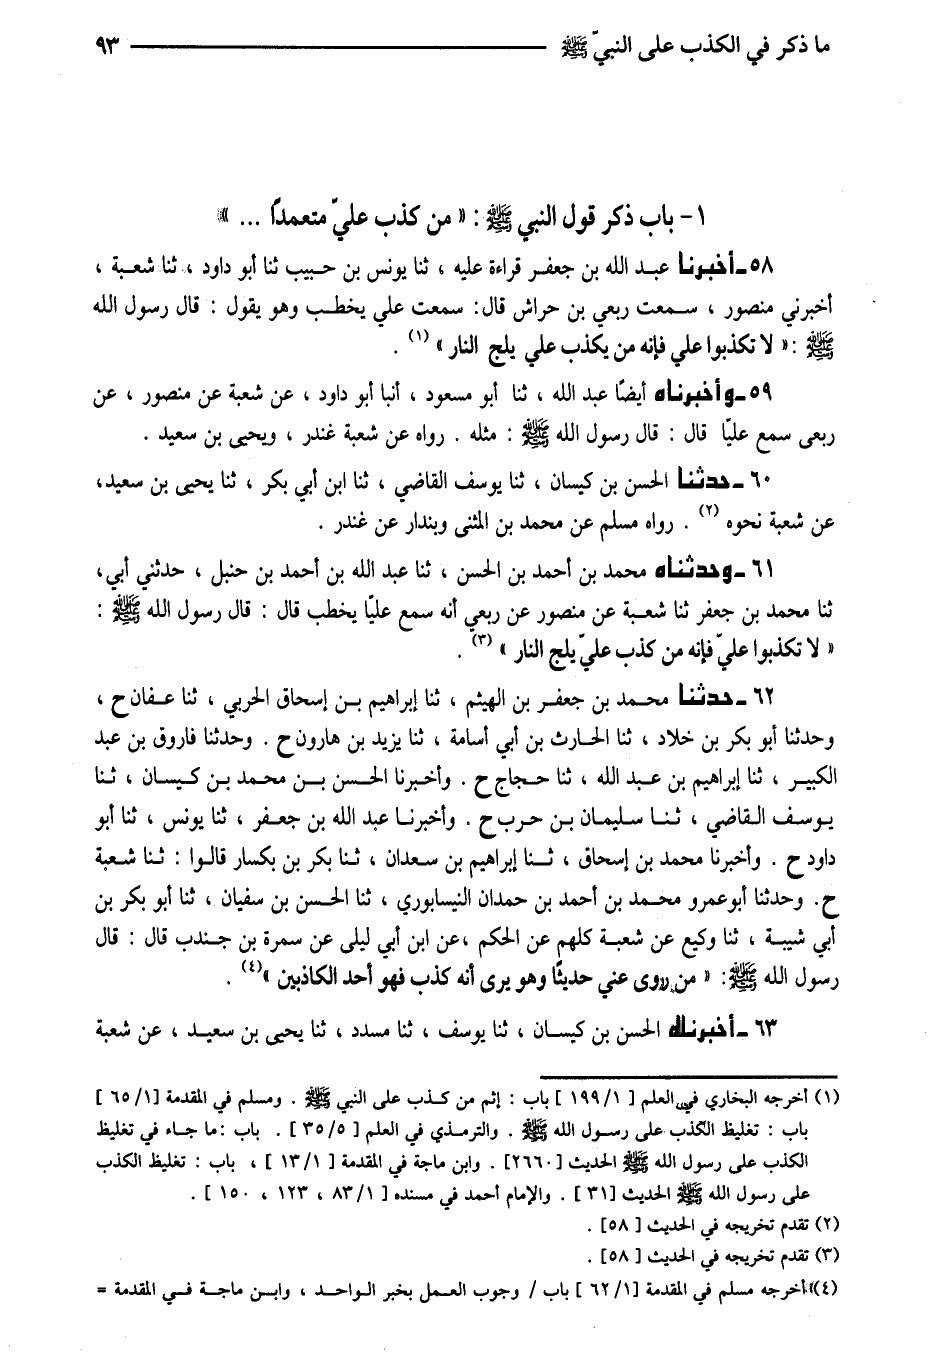 ما ذكر في الكذب على النبيّ ﷺ ٩٣
١- باب ذكر قول النبي ﷺ : « من كذب عليّ متعمدًا ... »
٥٨ـ أخبرنا عبد الله بن جعفر قراءة عليه ، ثنا يونس بن حبيب ثنا أبو داود ، ثنا شعبة ،
أخبرني منصور ، سمعت ربعي بن حراش قال: سمعت علي يخطب وهو يقول : قال رسول الله
ﷺ :« لا تكذبوا علي فإنه من يكذب علي يلج النار » (١) .
٥٩ـ وأخبرناه أيضًا عبد الله ، ثنا أبو مسعود ، أنبا أبو داود ، عن شعبة عن منصور ، عن
ربعى سمع عليًا قال : قال رسول الله ﷺ : مثله . رواه عن شعبة غندر ، ويحيى بن سعيد .
٦٠ ـ حدثنا الحسن بن كيسان ، ثنا يوسف القاضي ، ثنا ابن أبي بكر ، ثنا يحيى بن سعيد،
عن شعبة نحوه (٢) . رواه مسلم عن محمد بن المثنى وبندار عن غندر .
٦١ ـ وحدثناه محمد بن أحمد بن الحسن ، ثنا عبد الله بن أحمد بن حنبل ، حدثني أبي،
ثنا محمد بن جعفر ثنا شعبة عن منصور عن ربعي أنه سمع عليًا يخطب قال : قال رسول الله ﷺ :
« لا تكذبوا عليّ فإنه من كذب عليّ يلج النار » (٣) .
٦٢ ـ حدثنا محمد بن جعفر بن الهيثم ، ثنا إبراهيم بن إسحاق الحربي ، ثنا عفان ح ،
وحدثنا أبو بكر بن خلاد ، ثنا الحارث بن أبي أسامة ، ثنا يزيد بن هارون ح . وحدثنا فاروق بن عبد
الكبير ، ثنا إبراهيم بن عبد الله ، ثنا حجاج ح . وأخبرنا الحسن بن محمد بن كيسان ، ثنا
يوسف القاضي ، ثنا سليمان بن حرب ح . وأخبرنا عبد الله بن جعفر ، ثنا يونس ، ثنا أبو
داود ح . وأخبرنا محمد بن إسحاق ، ثنا إبراهيم بن سعدان ، ثنا بكر بن بكسار قالوا : ثنا شعبة
ح. وحدثنا أبوعمرو محمد بن أحمد بن حمدان النيسابوري ، ثنا الحسن بن سفيان ، ثنا أبو بكر بن
أبي شيبة ، ثنا وكيع عن شعبة كلهم عن الحكم ،عن ابن أبي ليلى عن سمرة بن جندب قال : قال
رسول الله ﷺ: « من روى عني حديثًا وهو يرى أنه كذب فهو أحد الكاذبين »(٤) .
٦٣ ـ أخبرناه الحسن بن كيسان ، ثنا يوسف ، ثنا مسدد ، ثنا يحيى بن سعيد ، عن شعبة
(١) أخرجه البخاري في العلم [ ١/ ١٩٩ ] باب : إثم من كذب على النبي ﷺ . ومسلم في المقدمة [١/ ٦٥ ]
باب : تغليظ الكذب على رسول الله ﷺ . والترمذي في العلم [ ٥/ ٣٥ ] . باب :ما جاء في تغليظ
الكذب على رسول الله ﷺ الحديث [٢٦٦٠] . وابن ماجة في المقدمة [ ١/ ١٣ ] ، باب : تغليظ الكذب
على رسول الله ﷺ الحديث [٣١ ] . والإمام أحمد في مسنده [ ١/ ٨٣ ، ١٢٣ ، ١٥٠ ] .
(٢) تقدم تخريجه في الحديث [ ٥٨] .
(٣) تقدم تخريجه في الحديث [ ٥٨] .
(٤) أخرجه مسلم في المقدمة [١/ ٦٢ ] باب / وجوب العمل بخبر الواحد ، وابن ماجة في المقدمة =